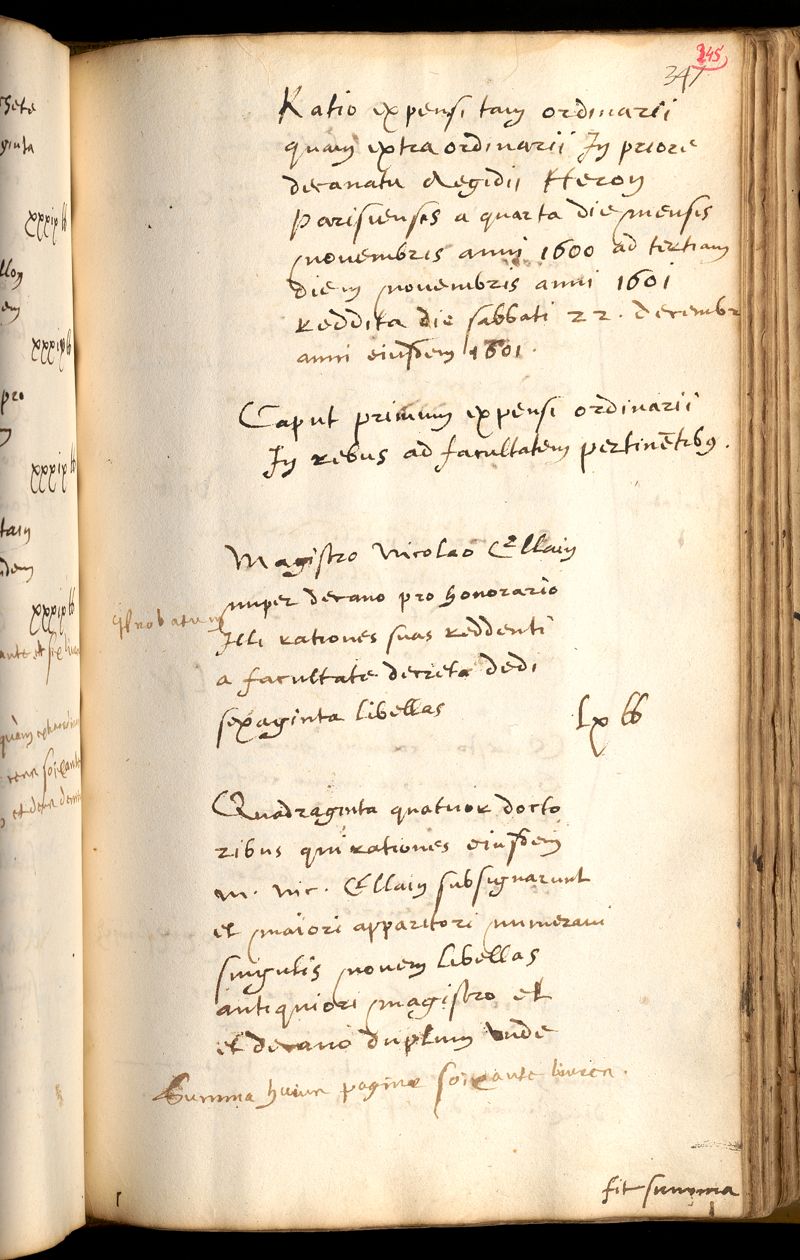 345
347
Ratio expensi tam ordinarii
quam extraordinarii In priore
decanatu Aegidii Heron
parisiensis a quarta die mensis
novembris anni 1600 ad tertiam
diem novembris anni 1601
reddita die sabbati 22. decembr
anni eiusdem 1601.
Caput primum expensi ordinarii
In rebus ad facultatem pertinẽtibꝯ.
Magistro Nicolao Ellain
nuper decano pro honorario
Illi rationes suas reddenti
a facultate decreta dedi
sexaginta libellas
lx ℔
probatum
Quadraginta quatuor docto
ribus qui rationes eiusdem
m. nic. Ellain subsignarunt
et maiori apparitori numeravi
singulis novem libellas
antiquiori magistro et
et decano duplum unde
Summa huius paginæ soixante livres.
fit summa
xxxix ℔
xxxix ℔
xxxix ℔
xxxix ℔
pro